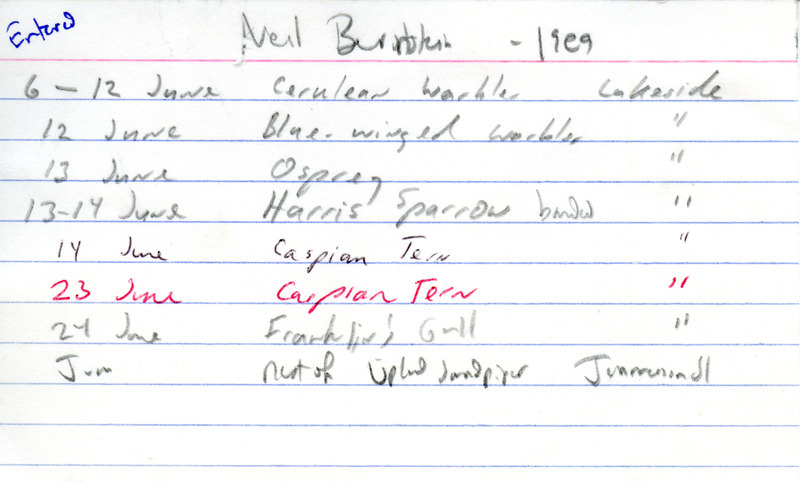 Entered
Neil Bernstein - 1989
6-12 June Cerulean warbler Lakeside
12 June Blue-winged warbler "
13 June Osprey "
13-14 June Harris Sparrow banded "
14 June Caspian Tern "
23 June Caspian Tern "
24 June Franklin's Gull "
June nest of Upland Sandpiper